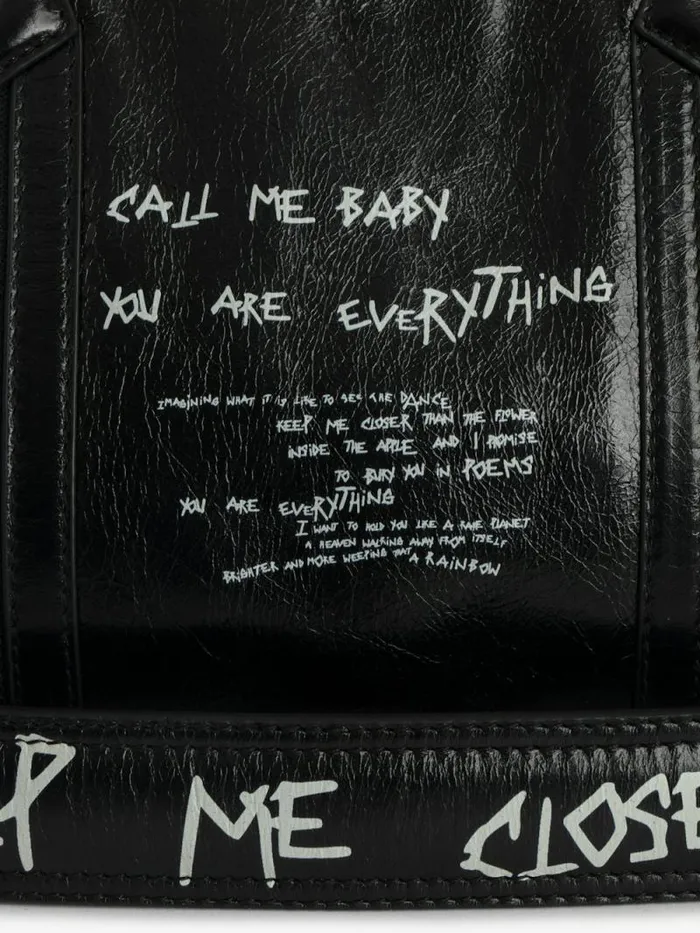 CALL ME BABY
YOU ARE EVERYTHiNG
IMAGiNiNG WHAT iT iS LIKE TO SEE THE DANCE
KEEP ME CLOSER THAN THE FLOWER
iNSiDE THE APPLE AND I PROMiSE
TO BURY YOU iN POEMS
YOU ARE EVERYTHiNG
I WANT TO HOLD YOU LIKE A RARE PLANET
A HEAVEN WALKiNG AWAY FROM iTSELF
BRiGHTER AND MORE WEEPiNG THAT A RAiNBOW
P ME CLOSE